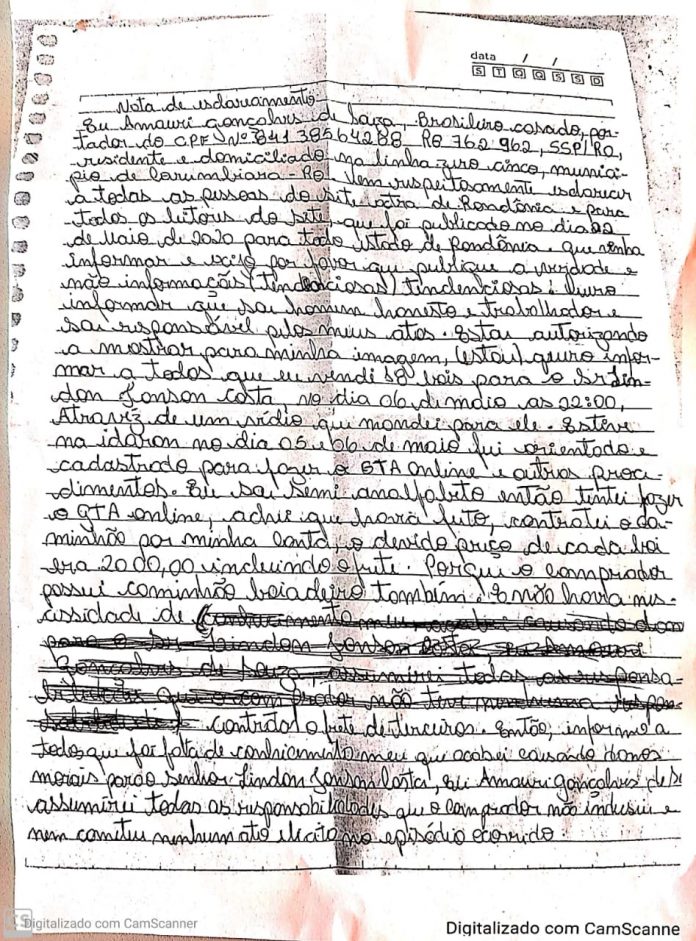 data / /
S T Q Q S S D
Nota de esclareamento
Eu Amauri Gonçalves de Souza, Brasileiro casado, por-
tador do CPF Nº 841 385 642 88 RG 762 962, SSP/RO,
residente e domiciliado na linha zero cinco, municí-
pio de Corumbiara - RO. Vem respeitosamente esclarecer
a todas as pessoas do site extra de Rondônia e para
todos os leitores do site, que foi publicado no dia 22
de Maio de 2020 para todo estado de Rondônia. que venha
informar e exijo por favor que publique a verdade e
não informação (tendenciosas) tindenciosas! quero
informar que sou homem honesto e trabalhador e
sou responsável pelos meus atos. Estou autorizando
a mostrar para minha imagem, (estou) quero infor-
mar a todos que eu vendi 18 bois para o Sr Lin-
don Jonson Costa, no dia 06 de maio as 22:00,
Atravéz de um vídio que mondei para ele. Estive
na idaron no dia 05 e 06 de maio fui orientado e
cadastrado para fazer o GTA Online e outros proce-
dimentos. Eu sou semi analfabeto então tentei fazer
o GTA online, achei que havia feito, contratei o ca-
minhão por minha conta, o devido preço de cada boi
era 2000,00 incluindo o frete. Porque o comprador
possui caminhão boiadeiro também. E não havia nes-
cissidade de
Gonçalves de Souza, assumirei todas as responsa-
contratar o frete de terceiros. Então, informo a
todos que foi falta de conhecimento meu que acabei causando danos
morais para o senhor Lindon Jonson Costa, Eu Amauri Gonçalves de S
assumirei todas as responsabilidades que o comprador não
nem cometeu nenhum ato ilicito no episódio ocorrido
CS Digitalizado com CamScanner
Digitalizado com CamScanne